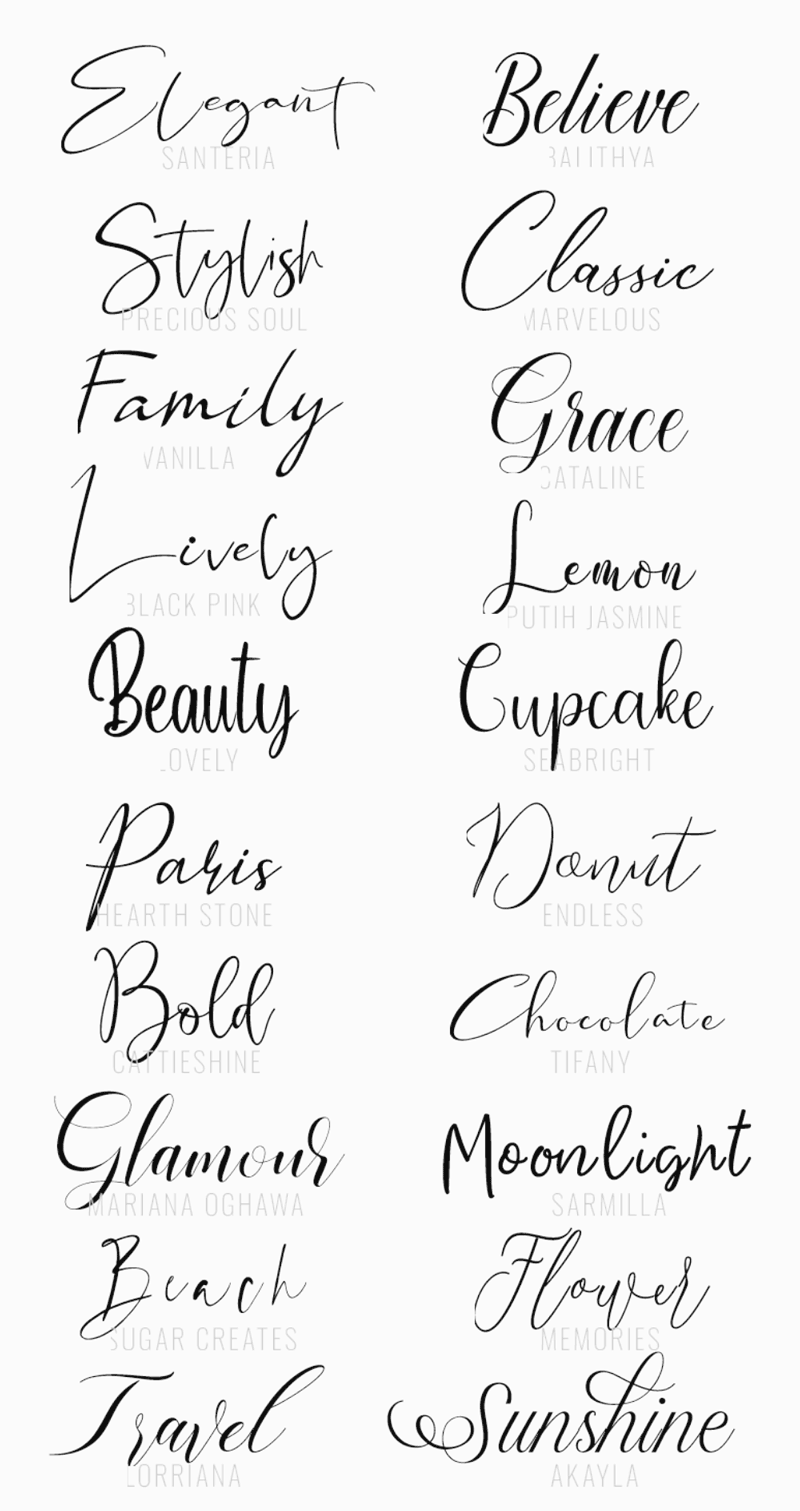 Elegant
SANTERIA
Believe
Stylish
PRECIOUS SOUL
Classic
MARVELOUS
Family
VANILLA
Grace
CATALINE
Lively
BLACK PINK
Lemon
PUTIH JASMINE
Beauty
LOVELY
Cupcake
SEABRIGHT
Paris
HEARTH STONE
Donut
ENDLESS
Bold
CATTIESHINE
Chocolate
TIFANY
Glamour
MARIANA OGHAWA
Moonlight
SARMILLA
Beach
SUGAR CREATES
Flower
MEMORIES
Travel
LORRIANA
Sunshine
AKAYLA